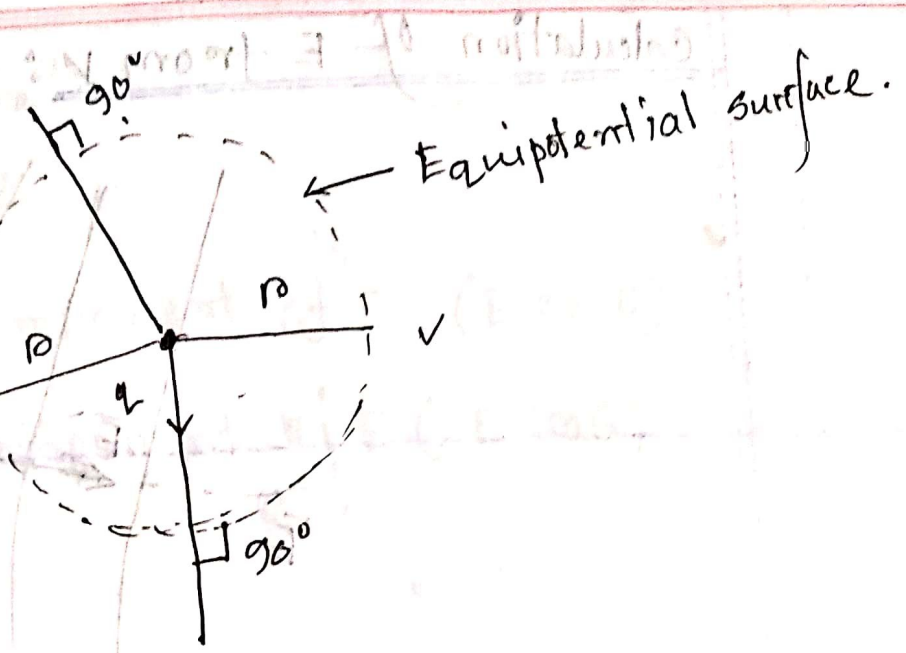 90°
Equipotential surface.
r
v
r
q
90°